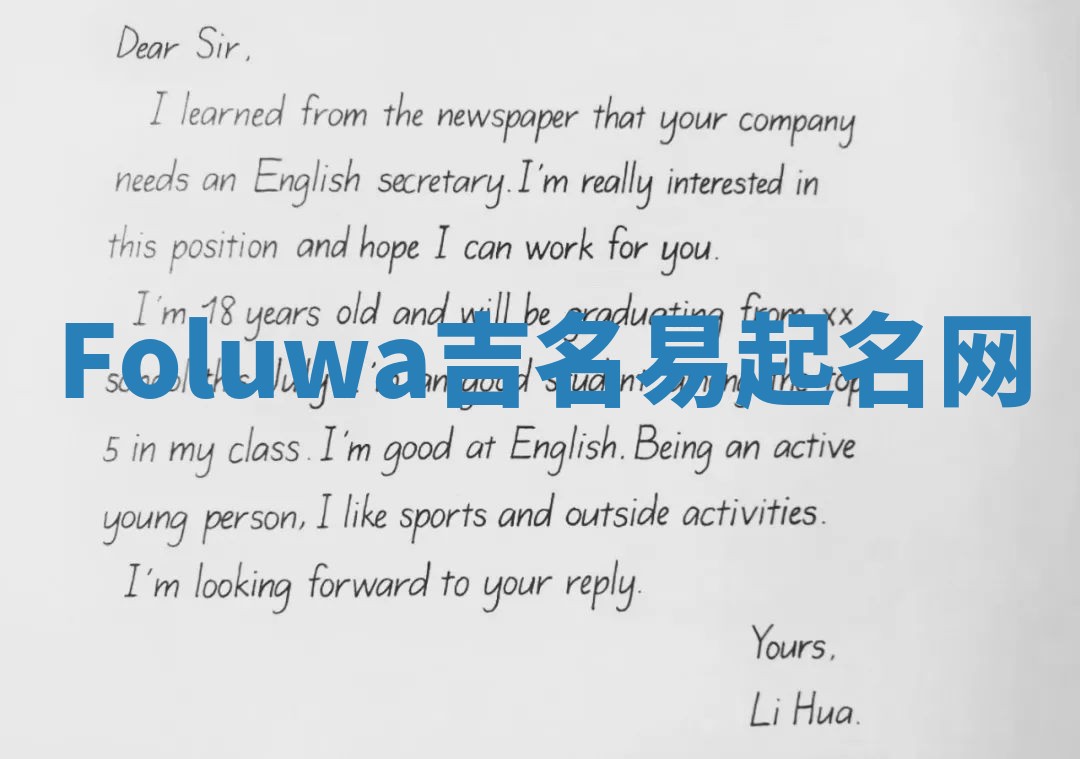 Dear Sir,
I learned from the newspaper that your company
needs an English secretary. I'm really interested in
this position and hope I can work for you.
I'm 18 years old and will be graduating from xx
Foluwa吉名易起名网
school this July. I'm good student among the top
5 in my class. I'm good at English. Being an active
young person, I like sports and outside activities.
I'm looking forward to your reply.
Yours,
Li Hua.